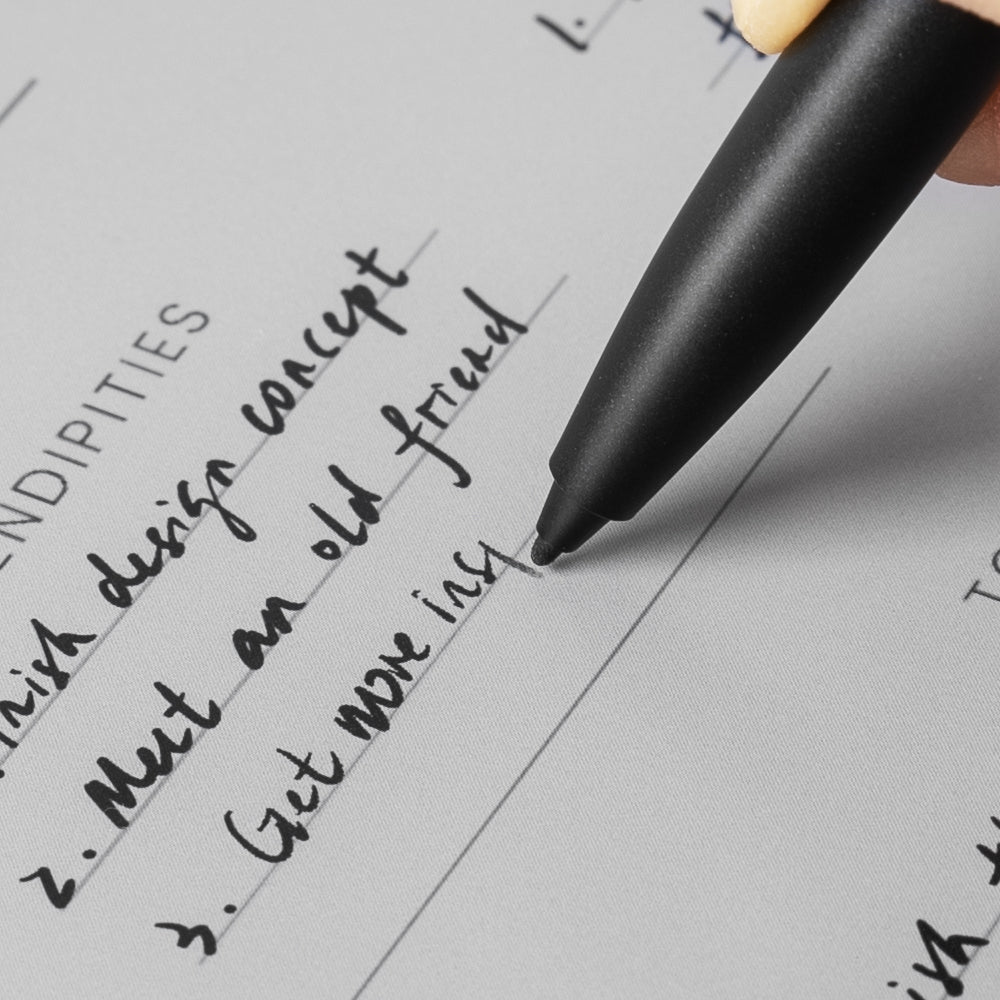 1.
ENDIPITIES
nish design concept
2. Meet an old friend
3. Get more insp
ish